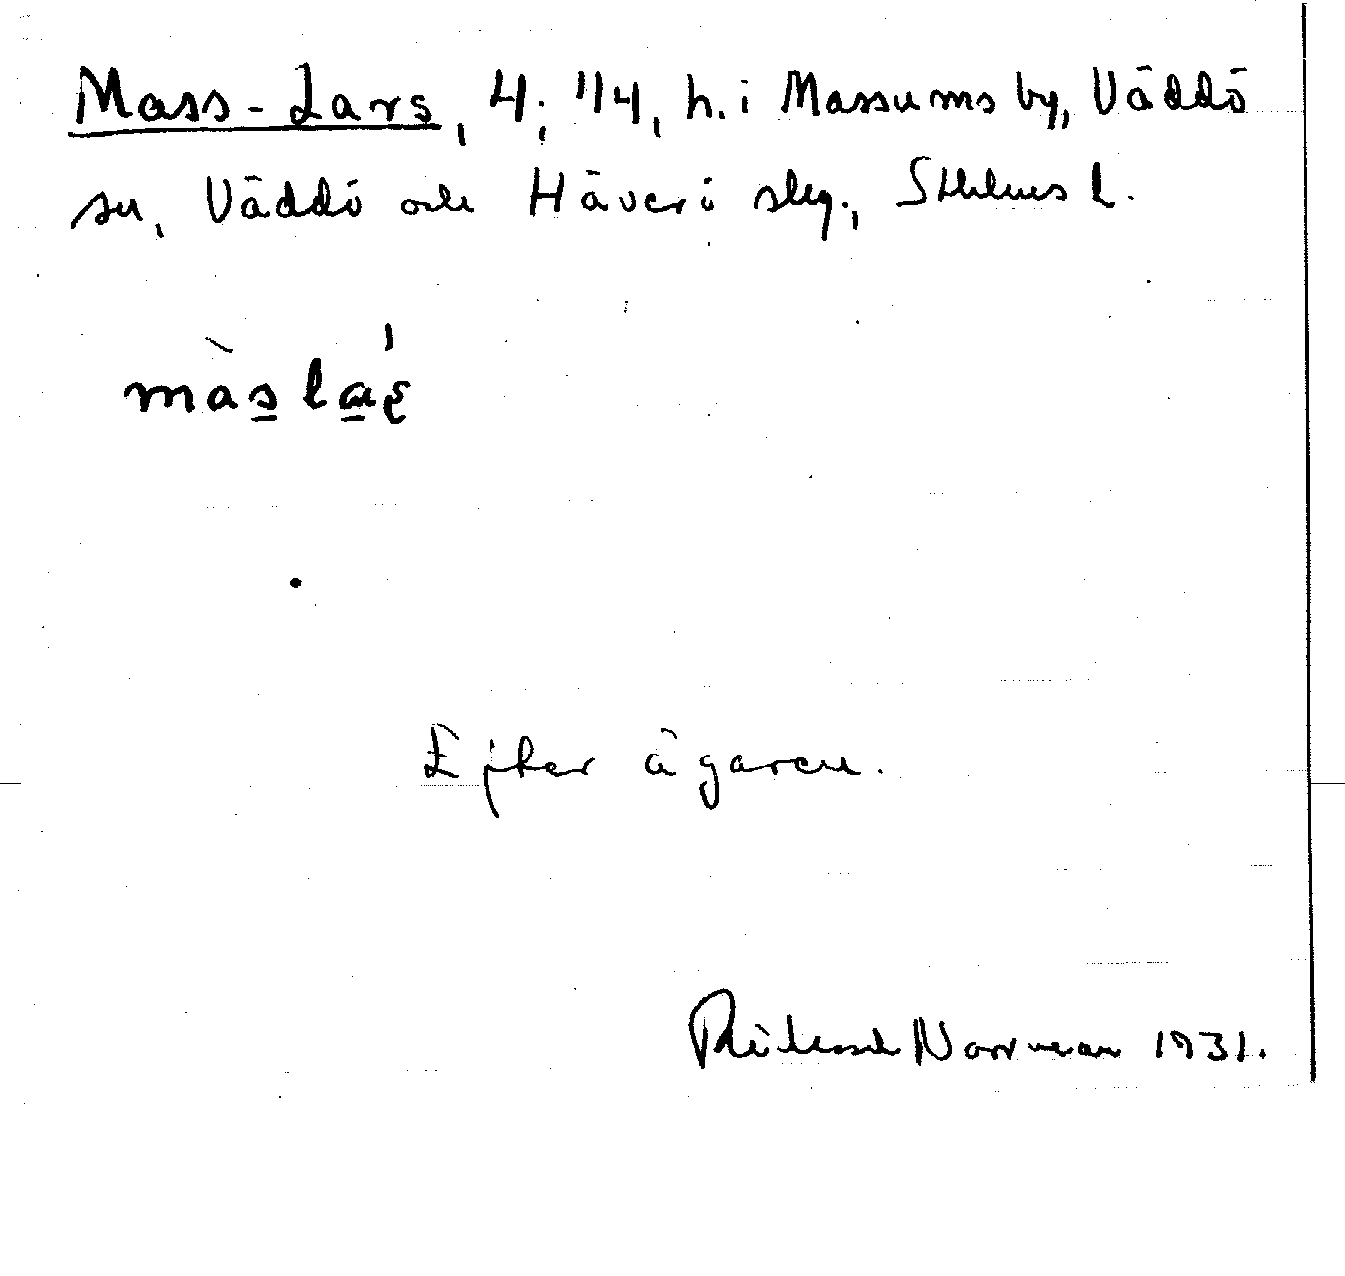 Mass-Lars, 4; 1/4, h. i Massums by, Väddö
sn, Väddö och Häverö skg., Sthlms l.
màs la̱ʂ
Efter ägaren.
Rickard Norrman 1931.